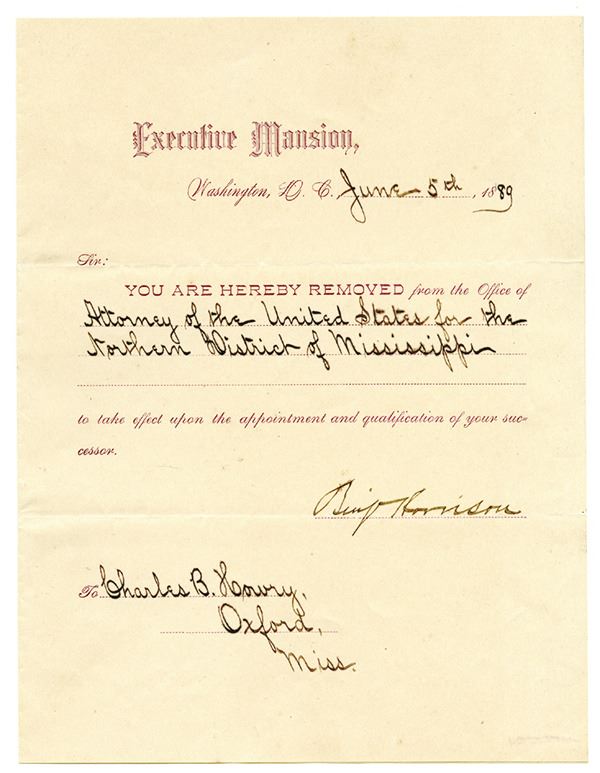 Executive Mansion,
Washington, D. C., June 5th, 1889
Sir:
YOU ARE HEREBY REMOVED from the Office of
Attorney of the United States for the
Northern District of Mississippi
to take effect upon the appointment and qualification of your suc-
cessor.
Benj Harrison
To Charles B. Howry,
Oxford,
Miss.